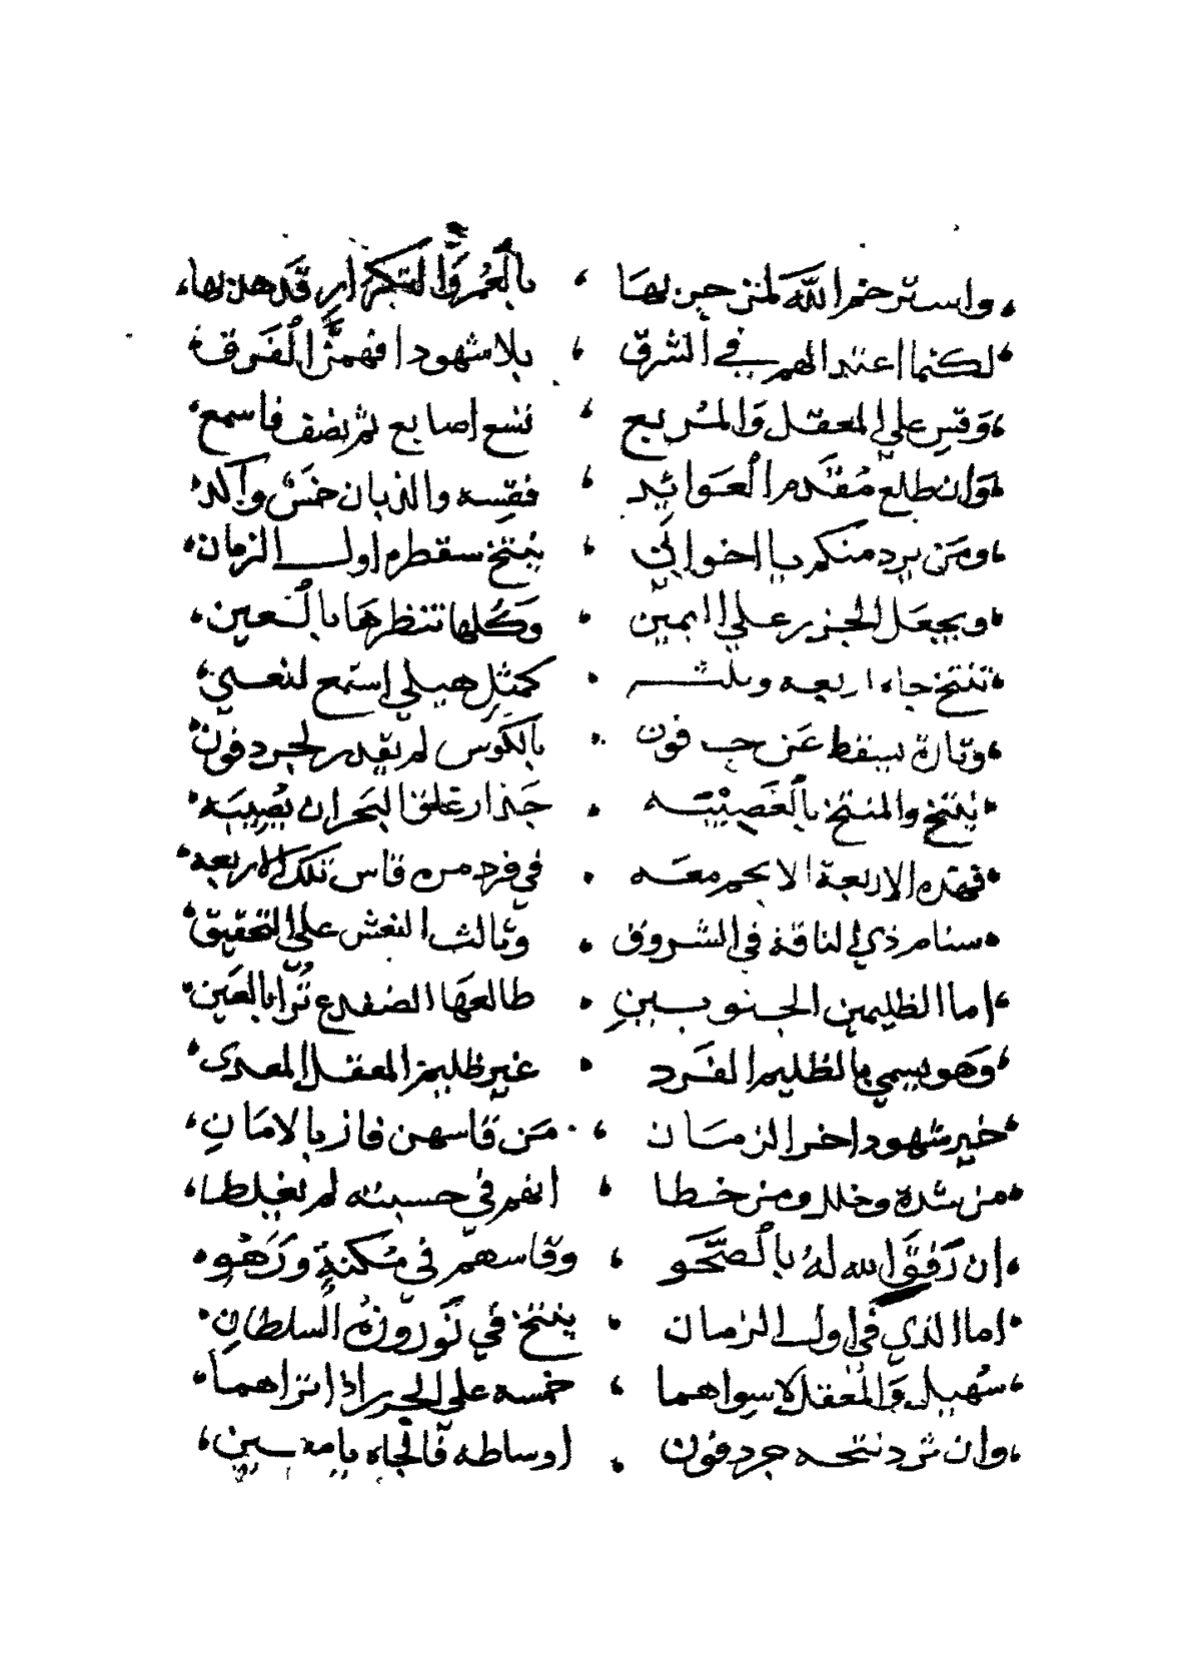 واسترحم الله لمن جربها بالعمر والتكرار قد هذبها
لكنما اعتدالهم في الشرق بلا شهود افهمن الفرق
وقس على المعقل والمربع تسع اصابع ثم نصف فاسمع
وان طلع مقدم العوائد فقسه والذبان خمس واكد
ومن يرد منكم يا اخواني ينتخ سقطره اول الزمان
ويجعل الجزر على اليمين وكلها تنتظرها بالعين
تنتخ جاه اربعه وثلث كمثل هيلي إستمع لنعتي
وتارة يسقط عن جب فون بالكوس لم يقدر لجرد فون
ينتخ والمنتخ بالغصيبه حذار غلق البحر ان يصيبه
فهذه الاربعة الا يحم معه في فرد من قاس تلك الاربعة
سنام ذي الناقة في الشروق وثالث النعش على التحقيق
اما الظليمين الجنوبيين طالعها الضفدع ترا بالعين
وهو يسمي بالظليم الفرد غير ظليم المعقل المعدى
خير شهود اخر الزمان من قاسهن فاز بالامان
من شدة وخلل ومن خطا انهم في حسبته لم يغلطا
إن رفق الله له بالصحو وقاسهم في مكنة وزهو
اما الذي في اول الزمان ينتخ في نوروزه السلطان
سهيل والمعقل لا سواهما خمسه على الجر اذا تراهما
وان ترد نتخه جرد فون اوساطه فالجاه يا